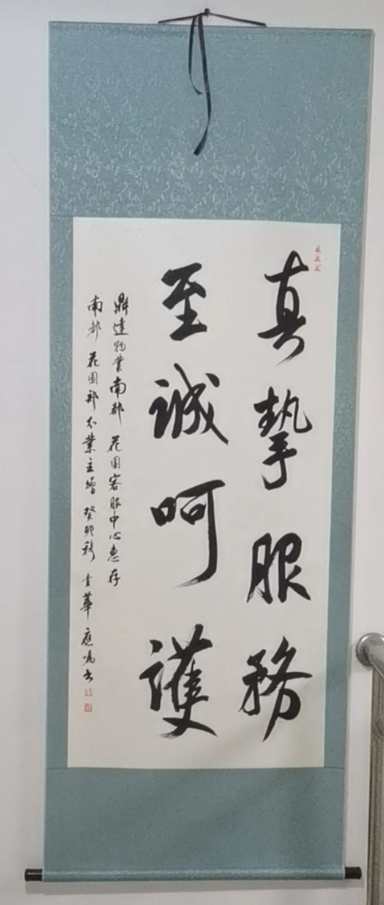 真摯服務
至誠呵護
鼎達物業南郡 花園客服中心惠存
南郡 花園部分業主贈 癸卯秋 書